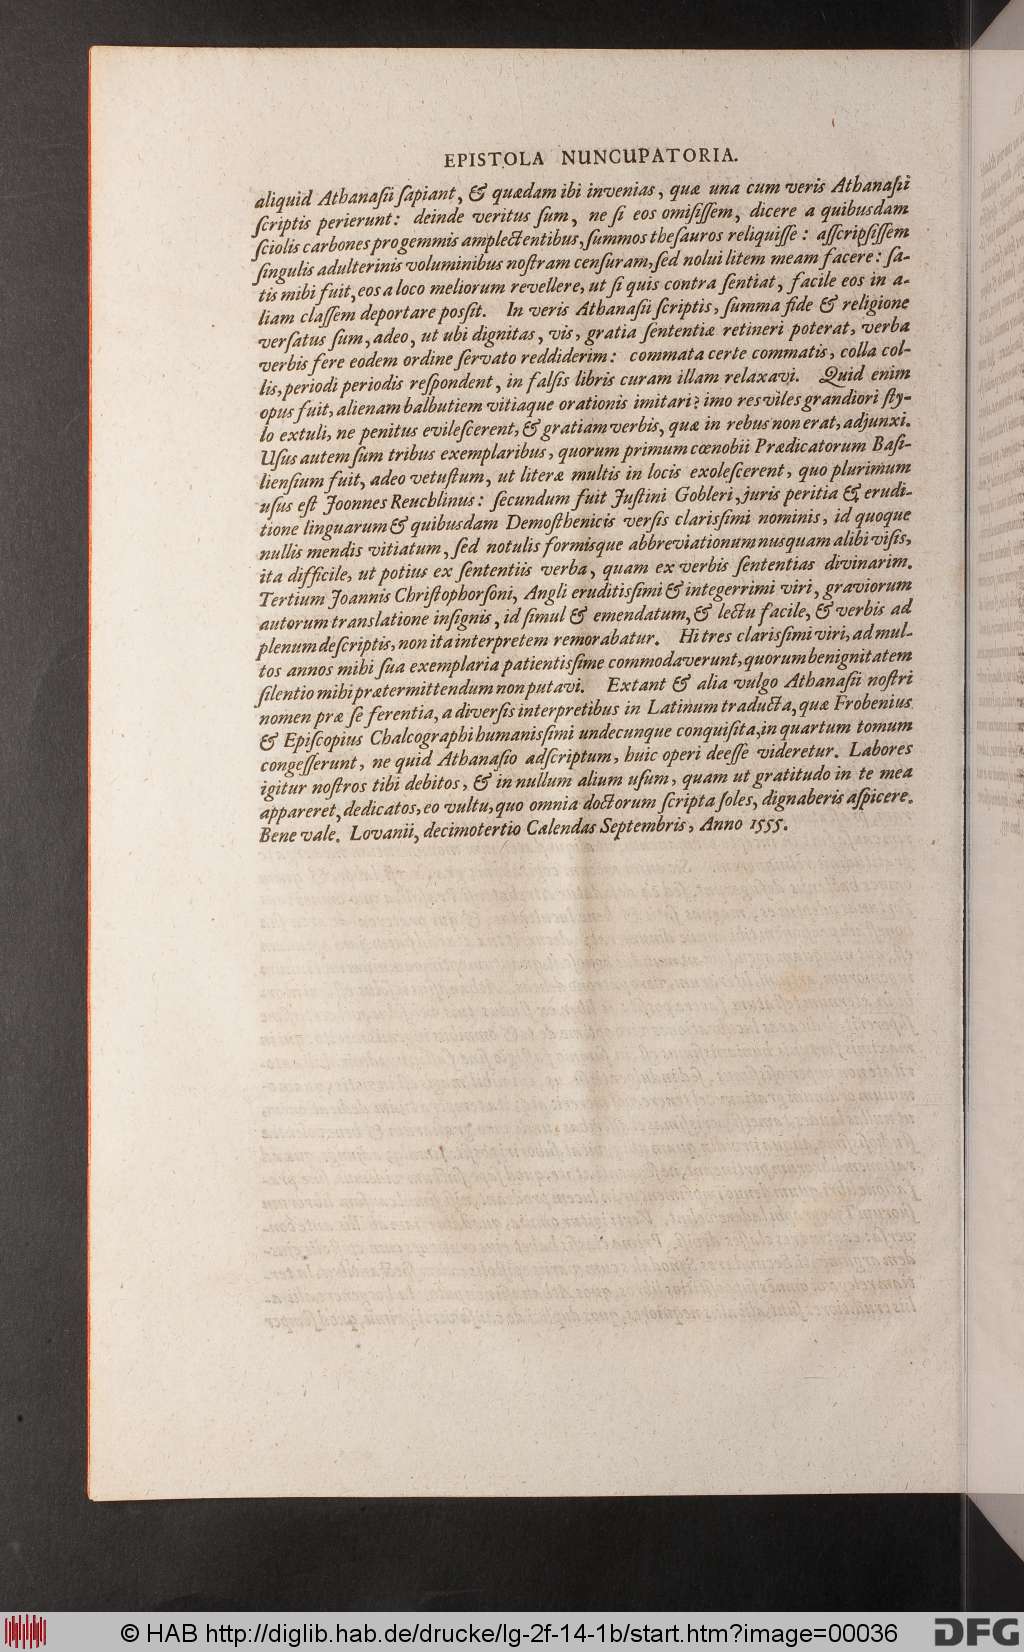 EPISTOLA NUNCUPATORIA.
aliquid Athanaſii ſapiant, & quædam ibi invenias, quæ una cum veris Athanaſii
ſcriptis perierunt: deinde veritus ſum, ne ſi eos omiſiſſem, dicere a quibusdam
ſciolis carbones pro gemmis amplectentibus, ſummos theſauros reliquiſſe: aſſcripſiſſem
ſingulis adulterinis voluminibus noſtram cenſuram, ſed nolui litem meam facere: ſa-
tis mihi fuit, eos a loco meliorum revellere, ut ſi quis contra ſentiat, facile eos in a-
liam claſſem deportare poſſit. In veris Athanaſii ſcriptis, ſumma fide & religione
verſatus ſum, adeo, ut ubi dignitas, vis, gratia ſententiæ retineri poterat, verba
verbis fere eodem ordine ſervato reddiderim: commata certe commatis, colla col-
lis, periodi periodis reſpondent, in falſis libris curam illam relaxavi. Quid enim
opus fuit, alienam balbutiem vitiaque orationis imitari? imo res viles grandiori ſty-
lo extuli, ne penitus evileſcerent, & gratiam verbis, quæ in rebus non erat, adjunxi.
Uſus autem ſum tribus exemplaribus, quorum primum cœnobii Prædicatorum Baſi-
lienſium fuit, adeo vetuſtum, ut literæ multis in locis exoleſcerent, quo plurimum
uſus eſt Joonnes Reuchlinus: ſecundum fuit Juſtini Gobleri, juris peritia & erudi-
tione linguarum & quibusdam Demoſthenicis verſis clariſſimi nominis, id quoque
nullis mendis vitiatum, ſed notulis formisque abbreviationum nusquam alibi viſis,
ita difficile, ut potius ex ſententiis verba, quam ex verbis ſententias divinarim.
Tertium Joannis Chriſtophorſoni, Angli eruditiſſimi & integerrimi viri, graviorum
autorum translatione inſignis, id ſimul & emendatum, & lectu facile, & verbis ad
plenum deſcriptis, non ita interpretem remorabatur. Hi tres clariſſimi viri, ad mul-
tos annos mihi ſua exemplaria patientiſſime commodaverunt, quorum benignitatem
ſilentio mihi prætermittendum non putavi. Extant & alia vulgo Athanaſii noſtri
nomen præ ſe ferentia, a diverſis interpretibus in Latinum traducta, quæ Frobenius
& Epiſcopius Chalcographi humaniſſimi undecunque conquiſita, in quartum tomum
congeſſerunt, ne quid Athanaſio adſcriptum, huic operi deeſſe videretur. Labores
igitur noſtros tibi debitos, & in nullum alium uſum, quam ut gratitudo in te mea
appareret, dedicatos, eo vultu, quo omnia doctorum ſcripta ſoles, dignaberis aſpicere.
Bene vale. Lovanii, decimotertio Calendas Septembris, Anno 1555.
© HAB http://diglib.hab.de/drucke/lg-2f-14-1b/start.htm?image=00036
DFG